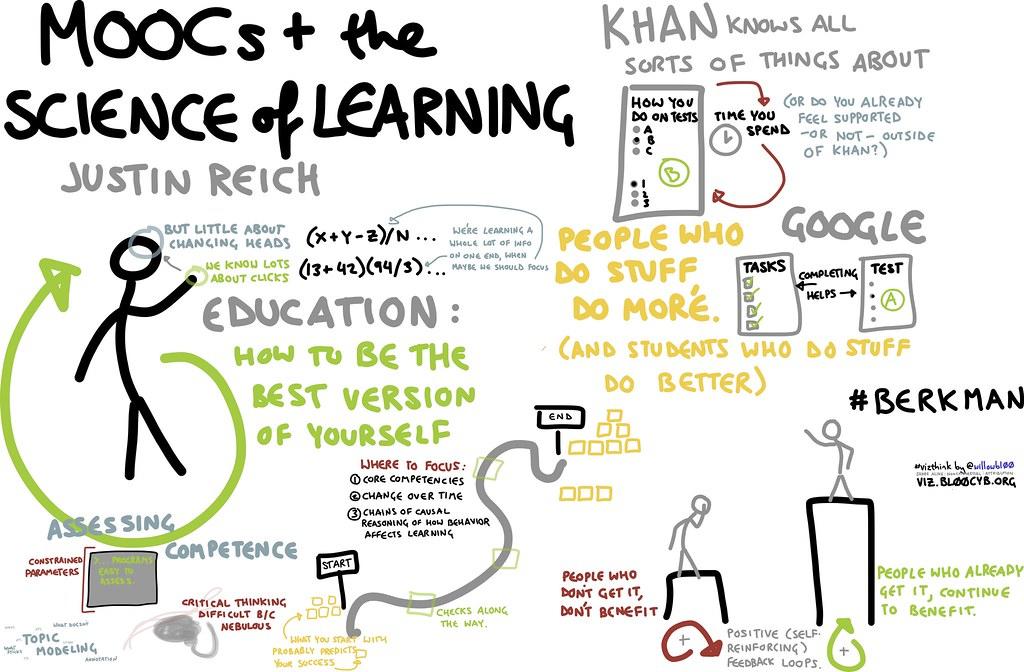 MOOCs + the
SCIENCE of LEARNING
JUSTIN REICH
KHAN KNOWS ALL
SORTS OF THINGS ABOUT
HOW YOU
DO ON TESTS
A
B
C
B
1
2
3
TIME YOU
SPEND
(OR DO YOU ALREADY
FEEL SUPPORTED
-OR NOT- OUTSIDE
OF KHAN?)
BUT LITTLE ABOUT
CHANGING HEADS
WE KNOW LOTS
ABOUT CLICKS
(X+Y-Z)/N ...
(13+42)(94/3)...
WE'RE LEARNING A
WHOLE LOT OF INFO
ON ONE END, WHEN
MAYBE WE SHOULD FOCUS
EDUCATION:
HOW TO BE THE
BEST VERSION
OF YOURSELF
PEOPLE WHO
DO STUFF
DO MORE.
(AND STUDENTS WHO DO STUFF
DO BETTER)
GOOGLE
TASKS
COMPLETING
HELPS
TEST
A
#BERKMAN
#vizthink by @willowbl00
VIZ.BL00CYB.ORG
END
WHERE TO FOCUS:
1 CORE COMPETENCIES
2 CHANGE OVER TIME
3 CHAINS OF CAUSAL
REASONING OF HOW BEHAVIOR
AFFECTS LEARNING
START
CHECKS ALONG
THE WAY.
WHAT YOU START WITH
PROBABLY PREDICTS
YOUR SUCCESS
ASSESSING
COMPETENCE
CONSTRAINED
PARAMETERS
PROGRAMS
EASY TO
ASSESS.
CRITICAL THINKING
DIFFICULT B/C
NEBULOUS
WHAT DOESN'T
TOPIC
MODELING
ANNOTATION
PEOPLE WHO
DON'T GET IT,
DON'T BENEFIT
+
POSITIVE (SELF-
REINFORCING)
FEEDBACK LOOPS.
+
PEOPLE WHO ALREADY
GET IT, CONTINUE
TO BENEFIT.